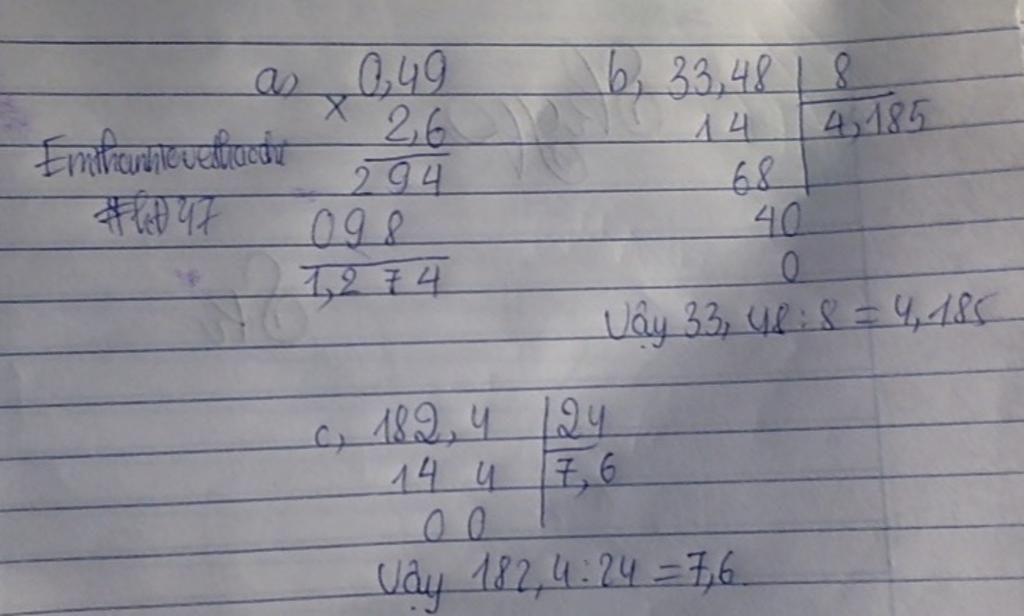 a, 0,49
×
2,6
294
098
1,274
#
47
b, 33,48 8
14 4,185
68
40
0
Vậy 33,48:8=4,185
c, 182,4 24
14 4 7,6
0 0
Vậy 182,4:24=7,6